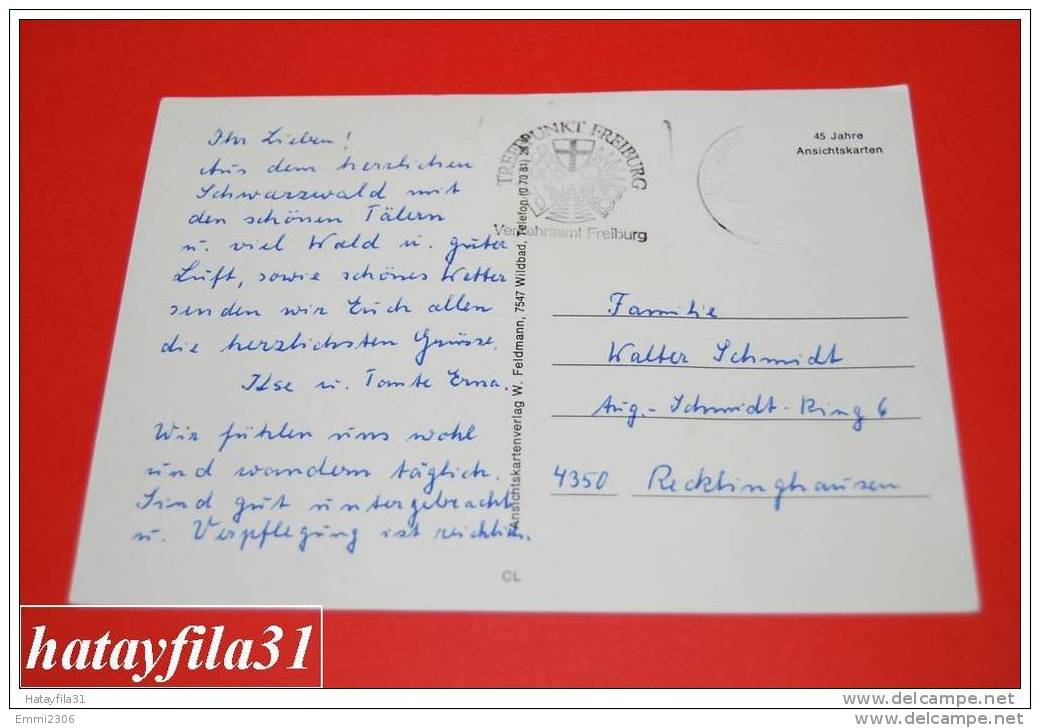 Ihr Lieben!
Aus dem herrlichen
Schwarzwald mit
den schönen Tälern
u. viel Wald u. guter
Luft, sowie schönes Wetter
senden wir Euch allen
die herzlichsten Grüsse.
Ilse u. Tante Erna.
Wir fühlen uns wohl
und wandern täglich.
Sind gut untergebracht
u. Verpflegung ist reichlich.
TREFFPUNKT FREIBURG
Verkehrsamt Freiburg
Ansichtskartenverlag W. Feldmann, 7547 Wildbad, Telefon (0 70 81)
CL
45 Jahre
Ansichtskarten
Familie
Walter Schmidt
Aug.-Schmidt-Ring 6
4350 Recklinghausen
hatayfila31
Hatayfila31
Emmi2306
www.delcampe.net
www.delcampe.net